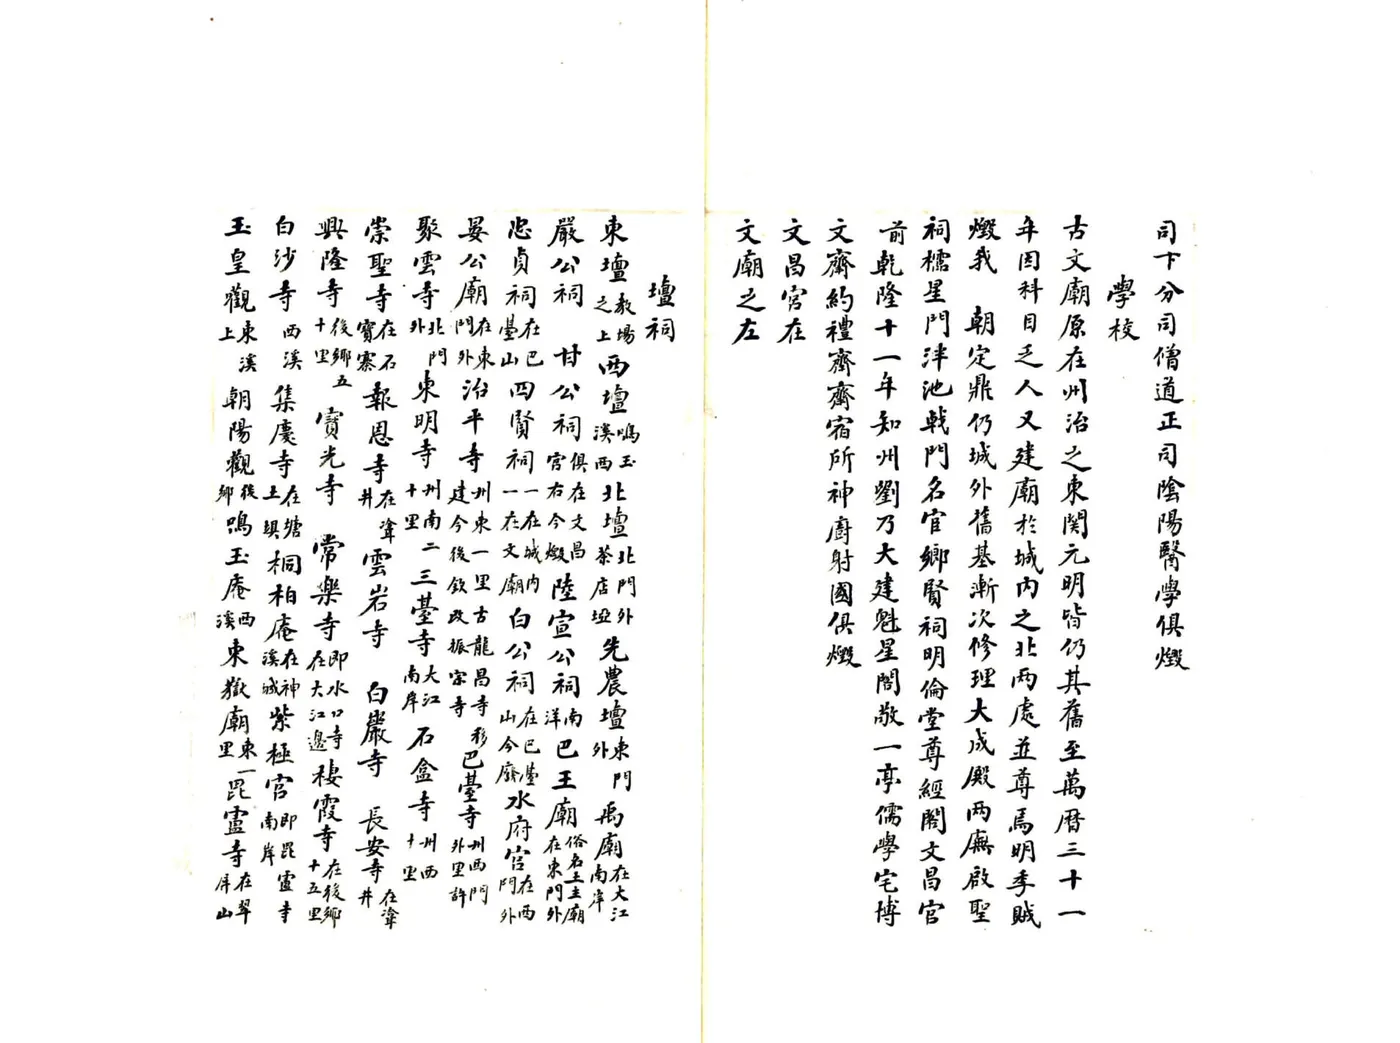 司下分司僧道正司陰陽醫學俱燬
學校
古文廟原在州治之東関元明皆仍其舊至萬曆三十一
年因科目乏人又建廟於城內之北两處並尊焉明季賊
燬我 朝定鼎仍城外舊基漸次修理大成殿两廡啟聖
祠櫺星門泮池戟門名官鄉賢祠明倫堂尊經閣文昌宮
前乾隆十一年知州劉乃大建魁星閣敬一亭儒學宅博
文齋約禮齋齋宿所神廚射國俱燬
文昌宮在
文廟之左
壇祠
東壇教場之上西壇鳴玉溪西北壇北門外茶店埡先農壇東門外禹廟在大江南岸
嚴公祠 甘公祠俱在文昌宮右今燬陸宣公祠南洋巴王廟俗名土主廟在東門外
忠貞祠在巴臺山四賢祠一在城內一在文廟白公祠在巴臺山今廢水府宮在西門外
晏公廟在東門外治平寺州東一里古龍昌寺移建今後欽改振宗寺巴臺寺州西門外里許
聚雲寺北門外東明寺州南二十里三臺寺大江南岸石盒寺州西十里
崇聖寺在石寶寨報恩寺在㽏井雲岩寺 白巖寺 長安寺在㽏井
興隆寺後鄉五十里寶光寺 常樂寺即水口寺在大江邊棲霞寺在後鄉十五里
白沙寺西溪集慶寺在塘土垻桐柏庵在神溪城紫極宮即毘盧寺南岸
玉皇觀東溪上朝陽觀後鄉鳴玉庵西溪東嶽廟東一里毘盧寺在翠屏山